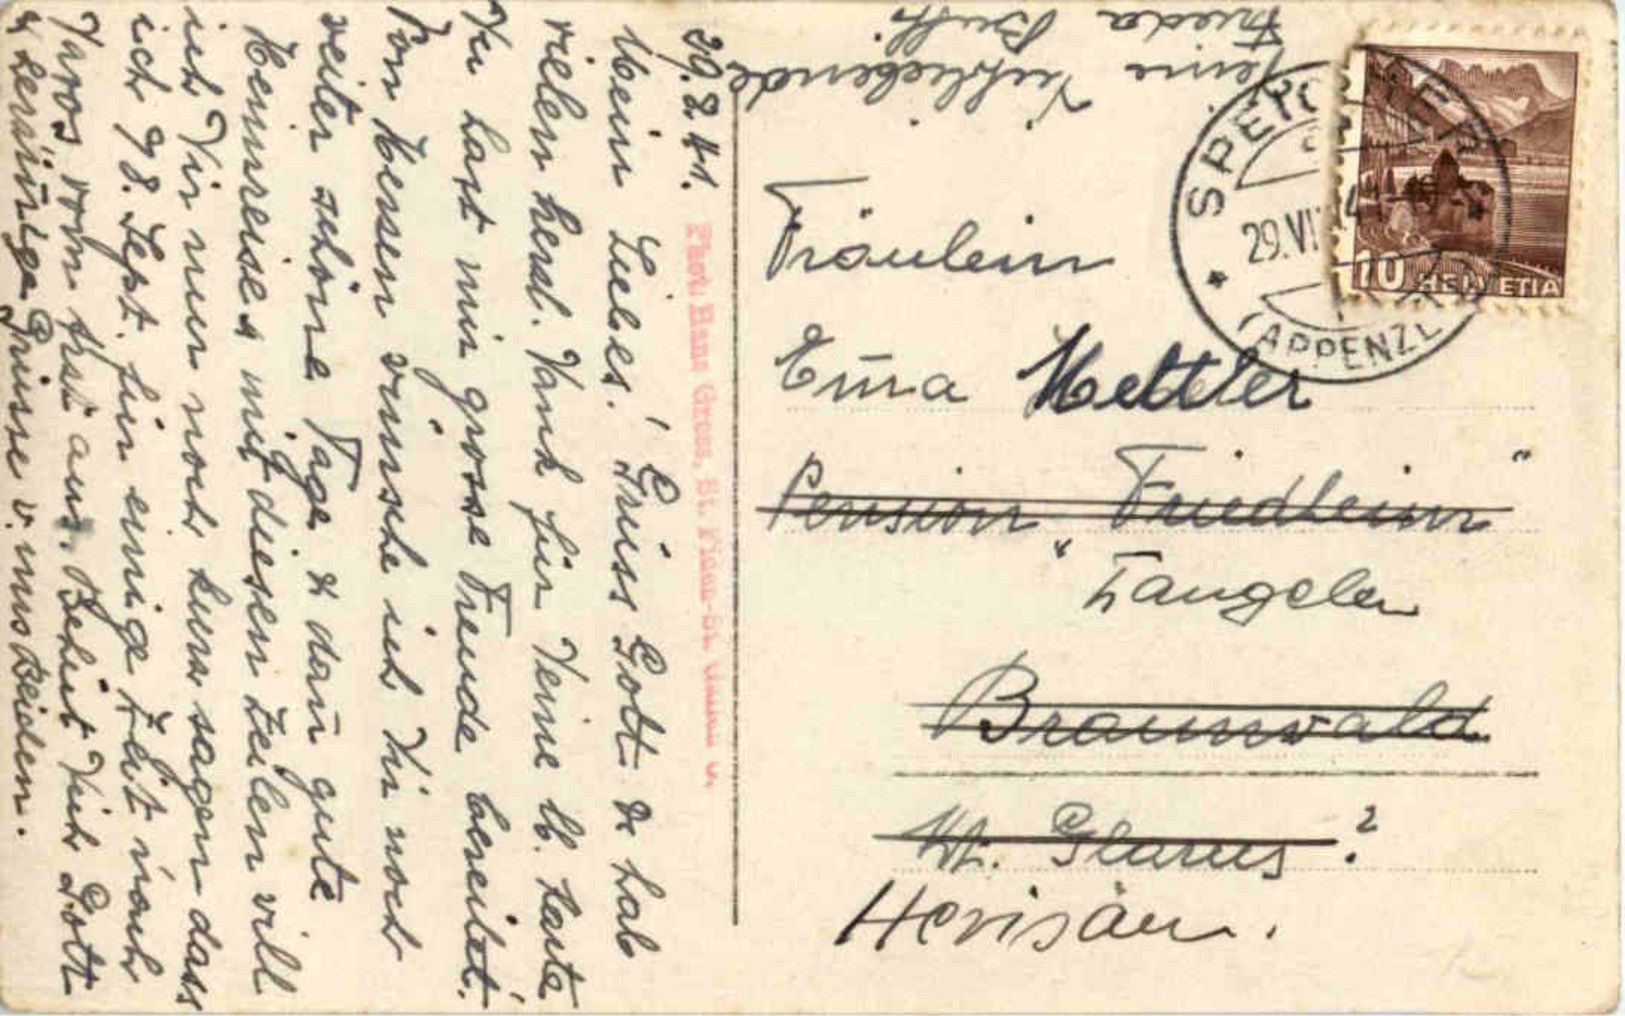 29.8.41.
Mein Liebes! Grüss Gott & hab
vielen herzl. Dank für Deine lb. Karte
Du hast mir grosse Freude bereitet.
Von Herzen wünsche ich Dir noch
weiter schöne Tage & dan̄ gute
Heimreise & mit diesen Zeilen will
ich Dir nur noch kurz sagen dass
ich 9 8. Sept. für einige Zeit nach
Davos vom aus. Behüt Dich Gott
& herzin̄ige Grüsse v. uns beiden.
Deine
Dichliebende
Frieda
Phot: Hans Gross, St. Fiden-St. Gallen O.
SPEICHER
29.VIII.41
(APPENZELL)
10 HELVETIA
Fräulein
Em̄a Mettler
Pension „Friedheim“
Braunwald
Kt. Glarus ?
Herisau.